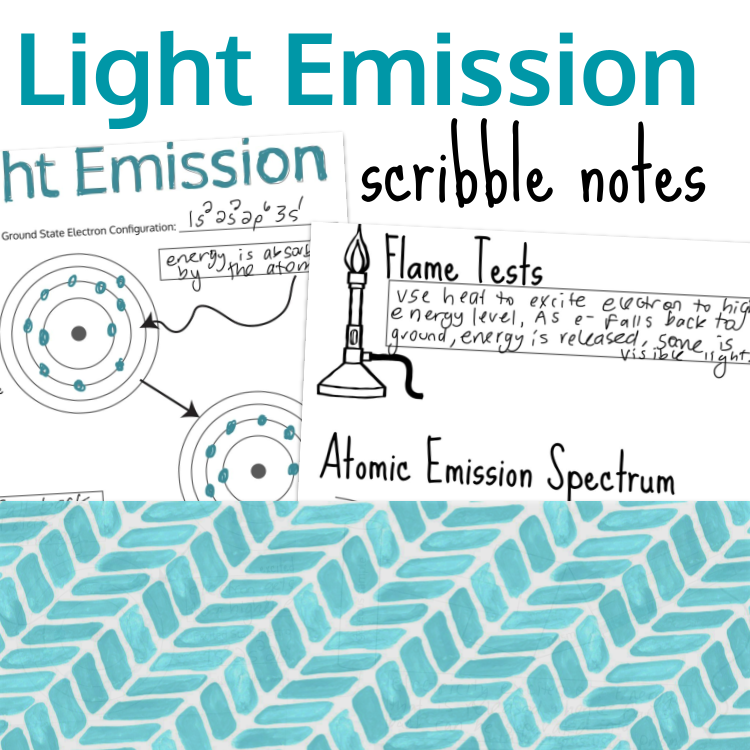 Light Emission
scribble notes
ht Emission
Ground State Electron Configuration: 1s² 2s² 2p⁶ 3s¹
energy is absorb
by the atom
Flame Tests
Use heat to excite electron to high
energy level, As e- falls back to
ground, energy is released, some is
visible light.
Atomic Emission Spectrum